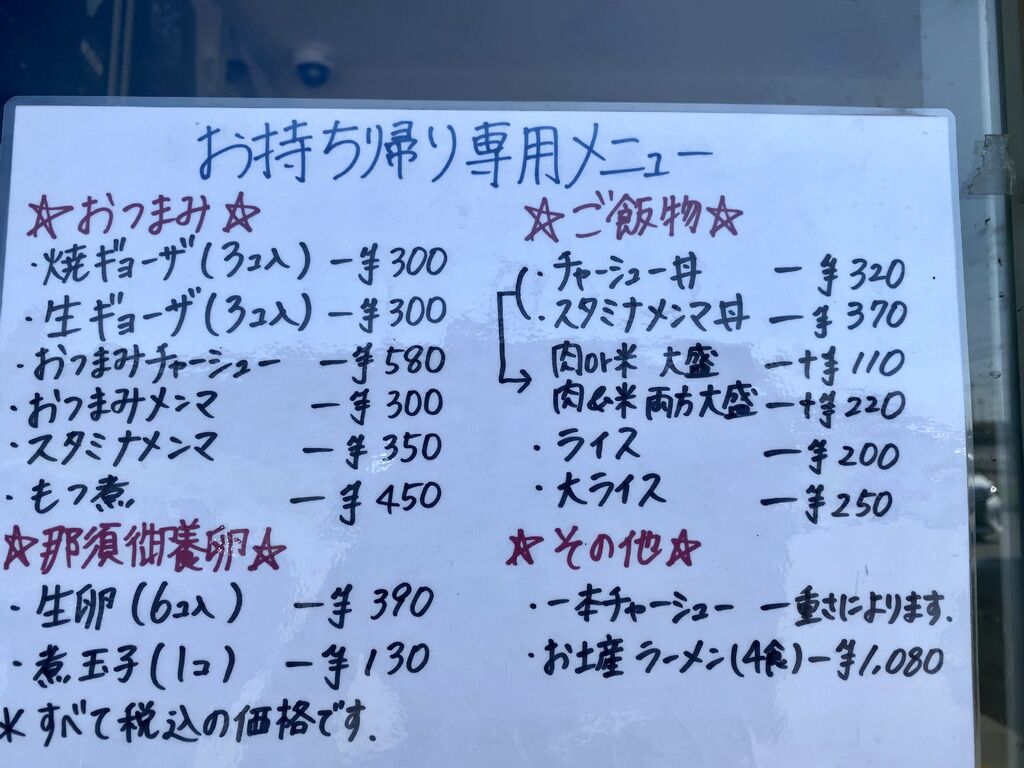 お持ち帰り専用メニュー
☆おつまみ☆
・焼ギョーザ(3コ入) ー¥300
・生ギョーザ(3コ入) ー¥300
・おつまみチャーシュー ー¥580
・おつまみメンマ ー¥300
・スタミナメンマ ー¥350
・もつ煮 ー¥450
☆那須御養卵☆
・生卵(6コ入) ー¥390
・煮玉子(1コ) ー¥130
*すべて税込の価格です.
☆ご飯物☆
・チャーシュー丼 ー¥320
・スタミナメンマ丼 ー¥370
肉or米 大盛 ー+¥110
肉&米 両方大盛 ー+¥220
・ライス ー¥200
・大ライス ー¥250
☆その他☆
・一本チャーシュー ー重さによります.
・お土産ラーメン(4食)ー¥1,080